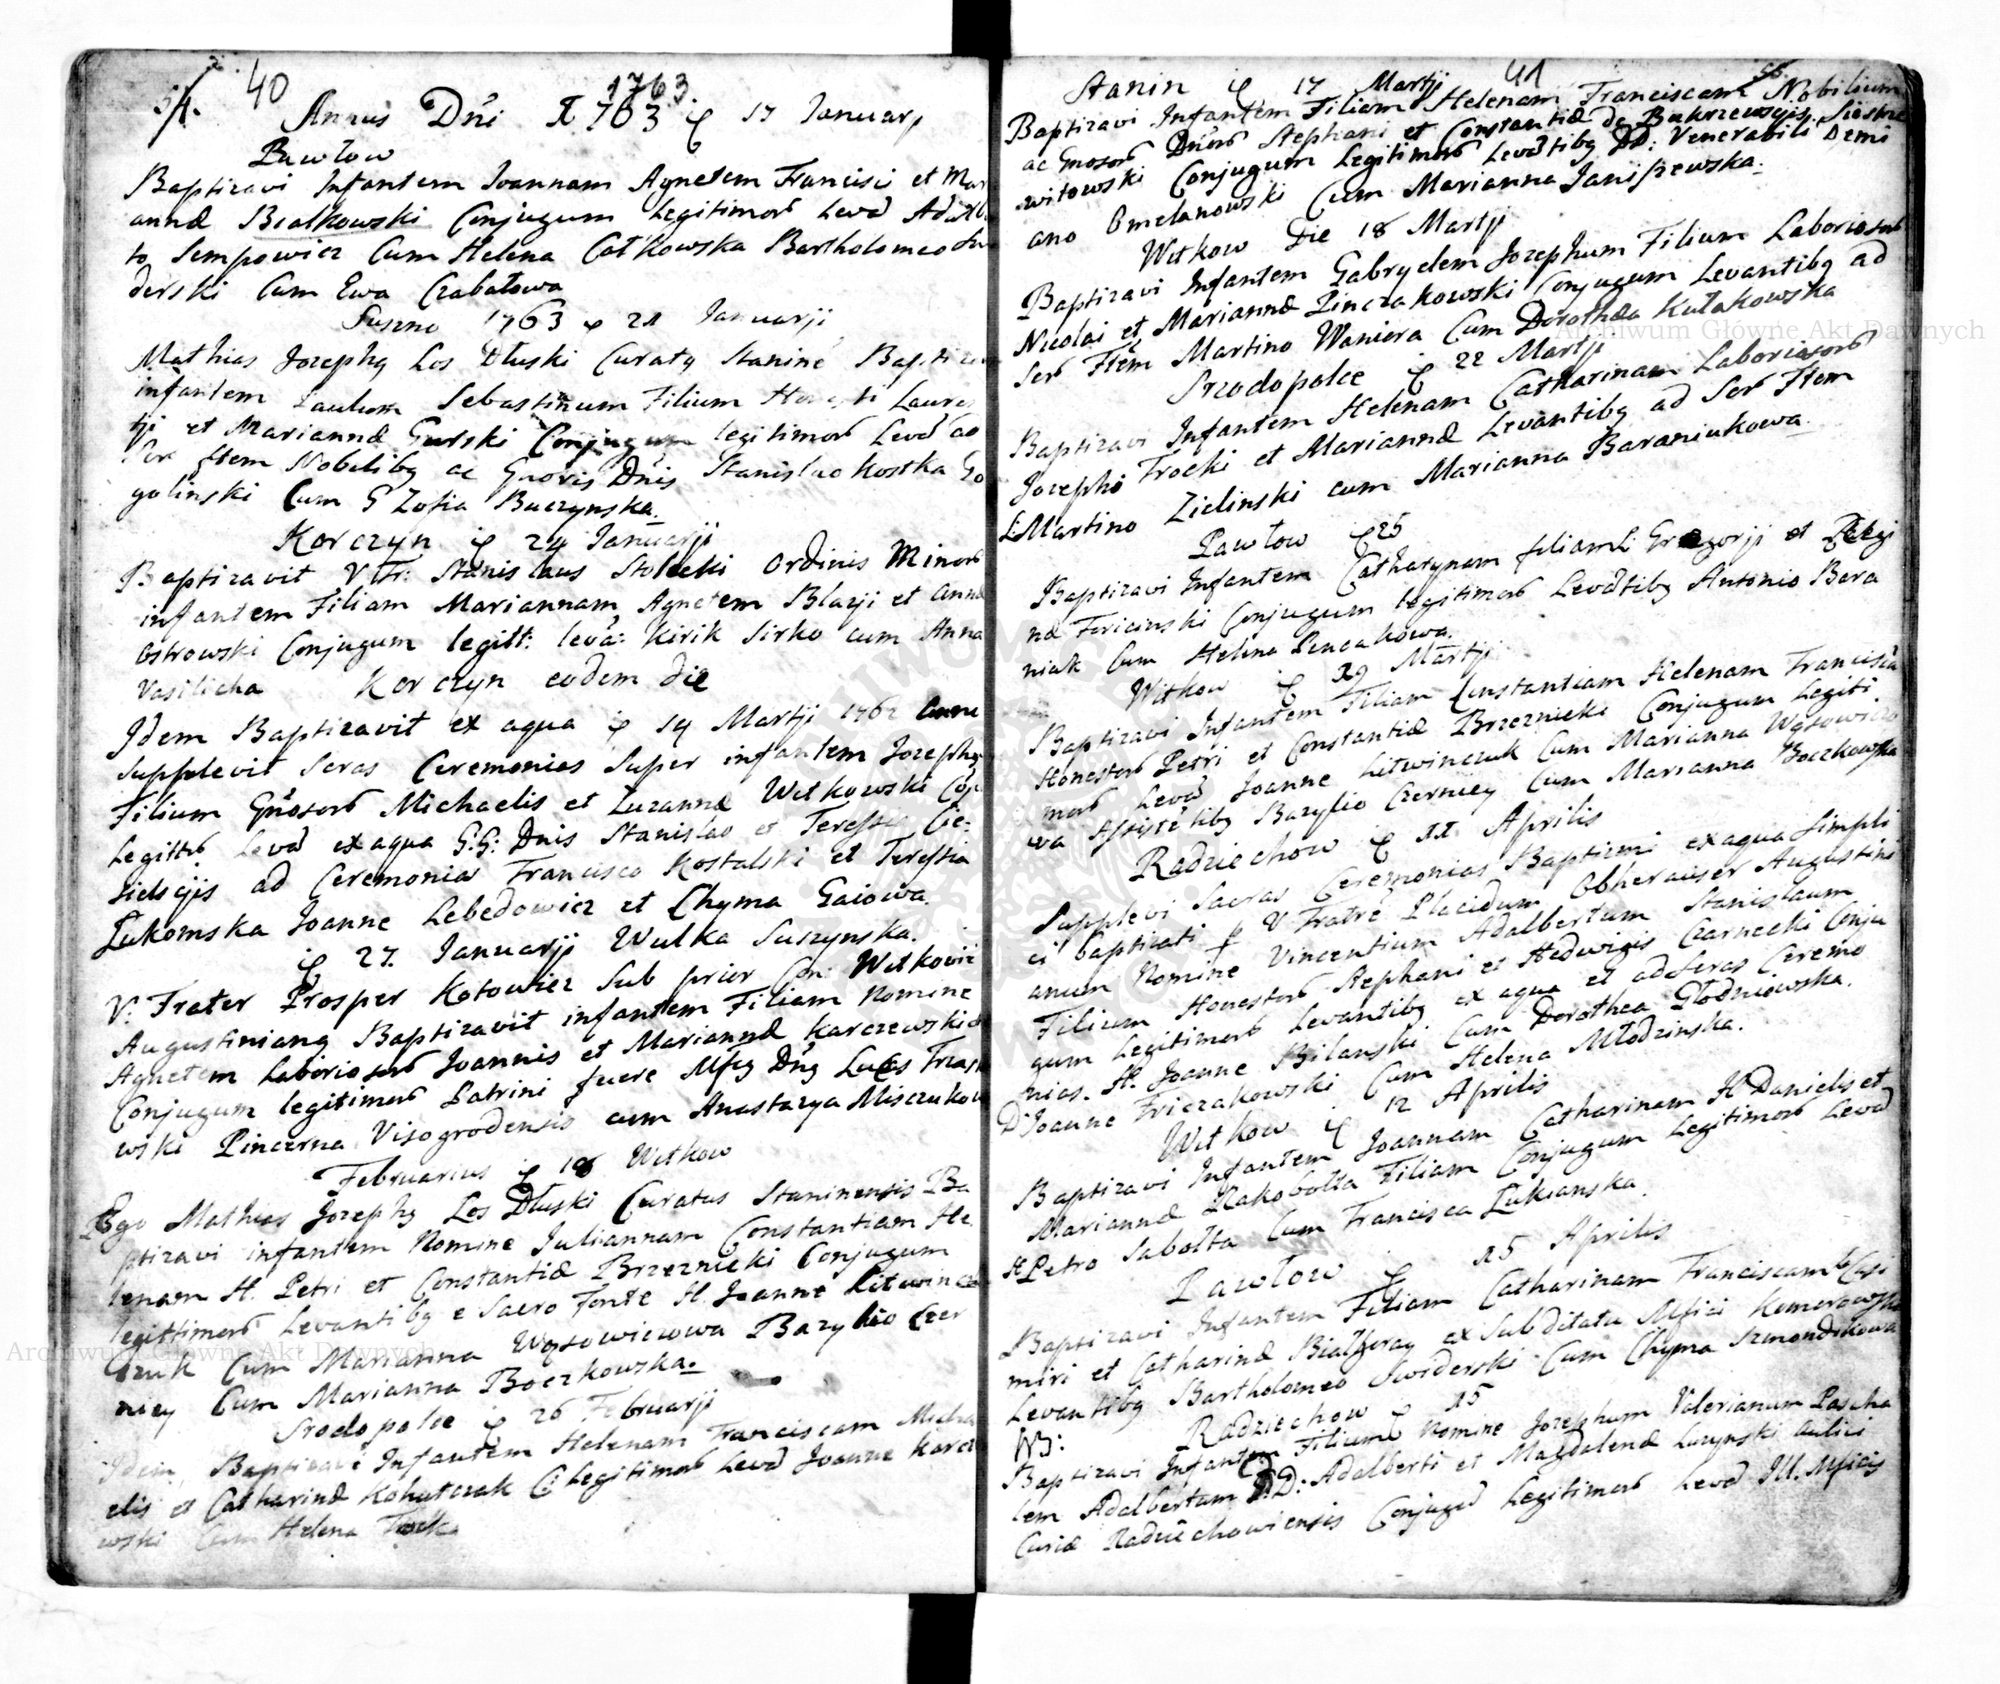 54. 40
1763
Annus Dñi 1763 17 Januarj
Pawłow
Baptizavi Infantem Joannam Agnetem Francisci et Mari
annæ Białkowski Conjugum Legitimor Leva Adalb
to Sempowicz Cum Helena Całkowska Bartholomeo Swi
derski Cum Ewa Czabatowa
Suszno 1763 21 Januarji
Mathias Jozephg Los Dłuski Curatg Stanine Baptizavi
infantem Paulum Sebastinum Filium Laure
tji et Mariannæ Gurski Conjugum legitimor Leva ad
Scr ftem Nobilibg ac Gnoris Dnis Stanislao Kostka Go
golinski Cum G Zofia Buczynska.
Korczyn 24 Januarji
Baptizavit V Fr: Stanislaus Stolecki Ordinis Minor
infantem Filiam Mariannam Agnetem Blazji et Annæ
Ostrowski Conjugum legitt: leva: Kirik Sirko cum Anna
Vasilicha Korczyn eodem die
Idem Baptizavit ex aqua 14 Martji 1762 Anno
Supplevit Scras Ceremonies Super infantem Jozephg
Filium Gñosor Michaelis et Zuzannæ Witkowski Cōp
Legittor Leva ex aqua G.G: Dnis Stanislao et Teressa Cie:
sielscijs ad Ceremonias Francisco Kostalski et Teressia
Łukomska Joanne Lebedowicz et Chyma Gaiowa.
27. Januarji Wulka Suszynska.
V: Frater Prosper Kotowicz Sub prior Con: Witkovii
Augustiniang Baptizavit infantem Filiam Nomine
Agnetem Laborioसor Joannis et Mariannæ Karczewski
Conjugum legitimor Patrini fuere Mfcg Dng Lucas Trzas
wski Pincerna Visogrodensis cum Anastazya Misczukow
Februarius 18 Witkow
Ego Mathias Jozephg Los Dłuski Curatus Staninensis Ba
ptizavi infantem Nomine Juliannam Constantiam He
lenam H. Petri et Constantiæ Brzeznicki Conjugum
legittimor Levantibg e Sacro Fonte H. Joanne Litwinc
czuk Cum Marianna Wąsowiczowa Bazylio Czer
niey Cum Marianna Boczkowska.
Srodopolce 26 Februarji
Idem Baptizavi Infantem Helenam Franciscam Micha
elis et Catharinæ Kohutczak C: Legitimor Leva Joanne Karcz
wski Cum Helena
41 55.
Stanin 17 Martji
Baptizavi Infantem Filiam Helenam Franciscam Nobilium
ac Gnosor Dñor Stephani et Constantiæ de Bukrzewscijs Siestrze
witowski Conjugum Legitimor Levātibg DD: Venerabili Demi
ano Omelanowski Cum Marianna Janiszewska.
Witkow Die 18 Martji
Baptizavi Infantem Gabryelem Jozephum Filium Laboriosor
Nicolai et Mariannæ Pinczakowski Conjugum Levantibg ad
Scr Ftem Martino Waniera Cum Dorothæa Kułakowska
Srzodopolce 22 Martji
Baptizavi Infantem Helenam Catharinam Laboriosor
Jozephi Trocki et Mariannæ Levantibg ad Scr Ftem
L Martino Zielinski cum Marianna Baraniukowa.
Pawłow 25
Baptizavi Infantem Catharynam filiam L Gregorji et
næ Fericinski Conjugum legitimor Levātibg Antonio Bara
niak Cum Helena Pencakowa.
Witkow 29 Martji
Baptizavi Infantem Filiam Constantiam Helenam Francisca
Honestor Petri et Constantiæ Brzeznicki Conjugum Legiti
mor Leva Joanne Litwinczuk Cum Marianna Wąsowiczo
wa Assistētibg Bazylio Czerniey Cum Marianna Boczkowska
Radziechow 11 Aprilis
Supplevi Sacras Ceremonias Baptizmi ex aqua simpli
ci baptizati V Fratre Placidum Obherauser Augustini
anum Nomine Vincentium Adalbertum Stanislaum
Filium Honestor Stephani et Hedwigis Czarnecki Conju
gum Legitimor Levantibg ex aqua et ad Scras Ceremo
nias. H. Joanne Bilanski Cum Dorothea Głodniowska.
D Joanne Friczakowski Cum Helena Młodzinska.
Witkow 12 Aprilis
Baptizavi Infantem Joannam Catharinam H Danielis et
Mariannæ Rakobołta Filiam Conjugum Legitimor Leva
H Petro Sabołta Cum Francisca Łukianska.
Pawłow 15 Aprilis
Baptizavi Infantem Filiam Catharinam Franciscam L Casi
miri et Catharinæ Białgray ex Subditatu Mfici Komorowski
Levantibg Bartholomeo Swiderski Cum Chyma Szmondrkowa
Radziechow 15
NB:
Baptizavi Infantem Filium Nomine Jozephum Valerianum Pascha
lem Adalbertum D.D: Adalberti et Magdalenæ Luzynski Aulici
Curiæ Radziechowiensis Conjugū Legitimor Leva Ill. Mficis
Archiwum Główne Akt Dawnych
Archiwum Główne Akt Dawnych